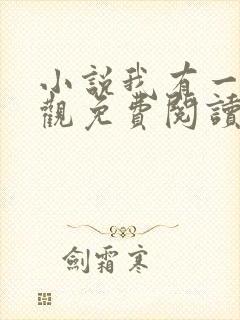 小說我有一
觀免費閱讀
劍霜寒